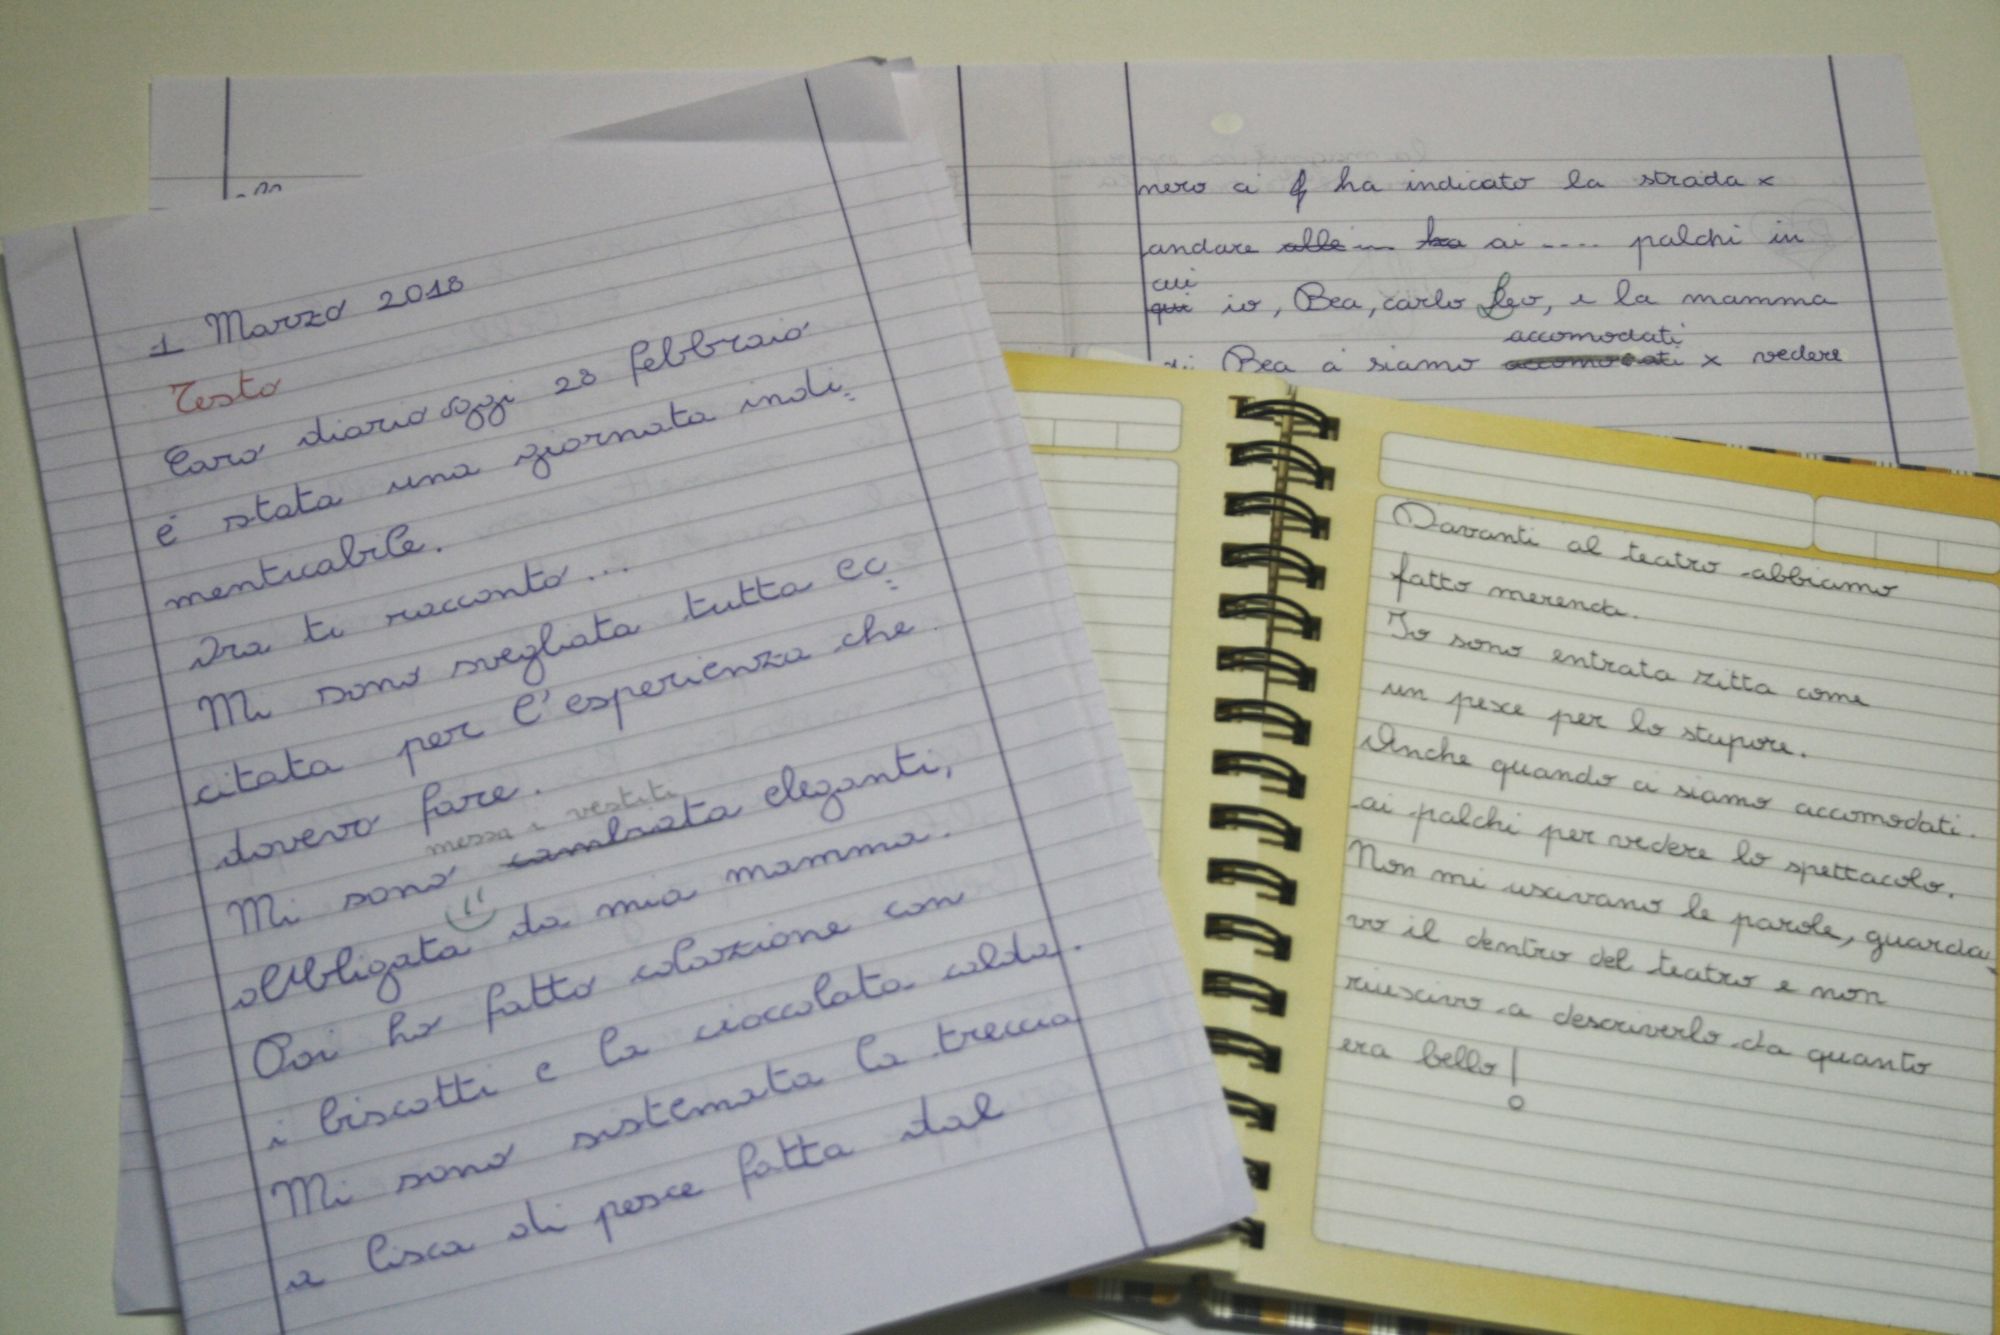 1 Marzo 2018
Testo
Caro diario oggi 28 febbraio
é stata una giornata indi:
menticabile.
Ora ti racconto...
Mi sono svegliata tutta ec:
citata per l'esperienza che
dovevo fare.
messa i vestiti
Mi sono cambiata eleganti,
obbligata da mia mamma.
Poi ho fatto colazione con
i biscotti e la cioccolata calda.
Mi sono sistemata la treccia
a lisca di pesce fatta dal
nero ci ha indicato la strada x
andare alle ... ha ai .... palchi in
cui
qui io, Bea, carlo Leo, e la mamma
accomodati
di Bea ci siamo accomodati x vedere
Davanti al teatro abbiamo
fatto merenda.
Io sono entrata zitta come
un pesce per lo stupore.
Anche quando ci siamo accomodati.
ai palchi per vedere lo spettacolo.
Non mi uscivano le parole, guarda-
vo il dentro del teatro e non
riuscivo a descriverlo da quanto
era bello!